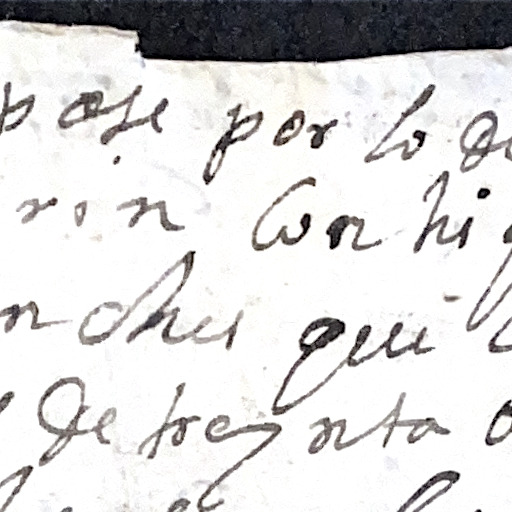 pase por lo de
rin Con hi
n ches que
de treynta